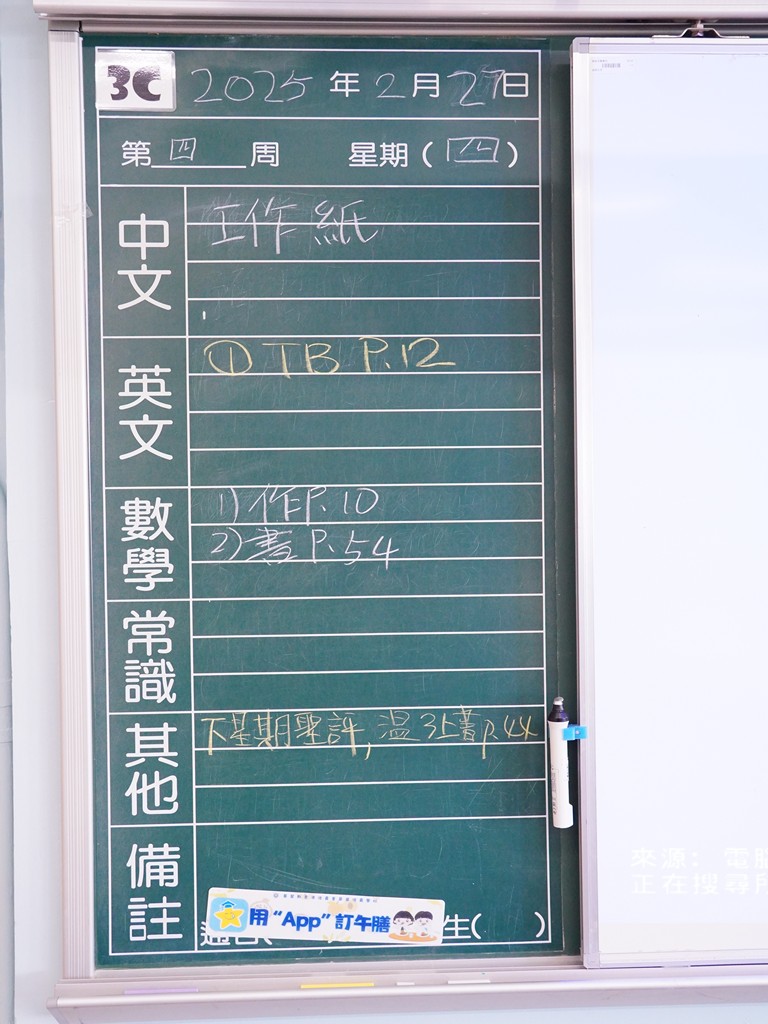 3C 2025 年 2 月 27 日
第 四 周 星期 ( 四 )
中文
工作紙
英文
① TB P.12
數學
1) 作 P.10
2) 書 P.54
常識
其他
下星期聖評, 溫 3上書 P.44
備註
用 “App” 訂午膳
生( )
來源: 電腦
正在搜尋所